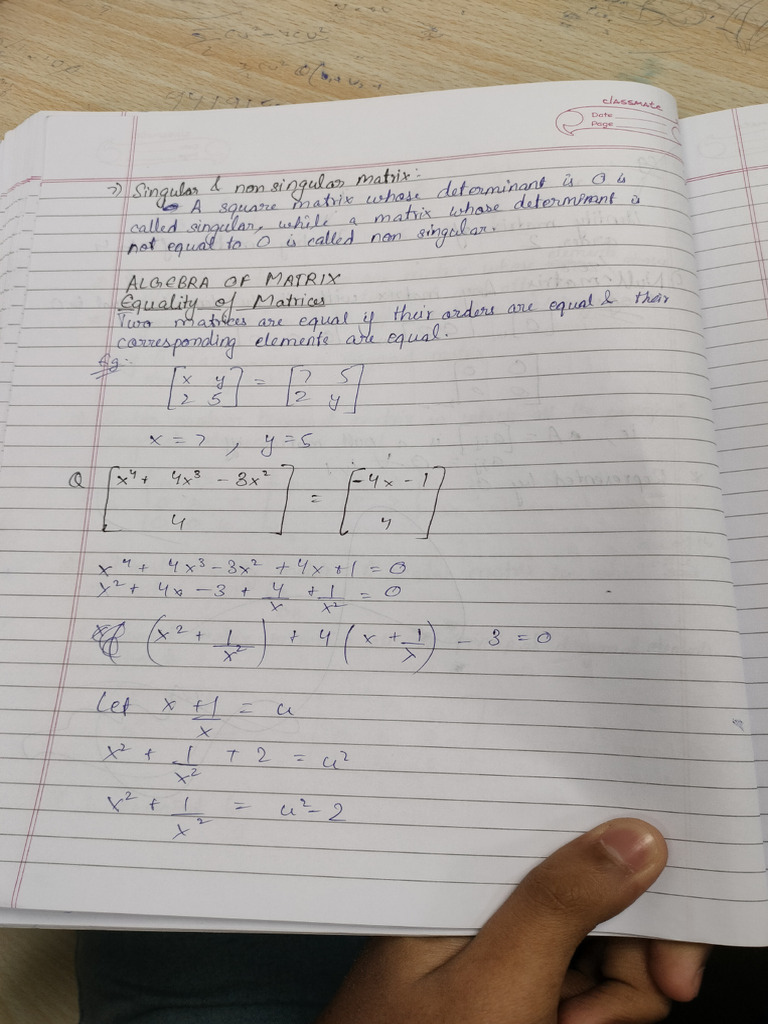 classmate
Date
Page
7) Singular & non singular matrix:
A square matrix whose determinant is 0 is
called singular, while a matrix whose determinant is
not equal to 0 is called non singular.
ALGEBRA OF MATRIX
Equality of Matrices
Two matrices are equal if their orders are equal & their
corresponding elements are equal.
Eg:-
[x y] = [7 5]
[2 5] [2 y]
x = 7 , y = 5
Q [x⁴ + 4x³ - 3x²] = [-4x - 1]
[4] [4]
x⁴ + 4x³ - 3x² + 4x + 1 = 0
x² + 4x - 3 + 4/x + 1/x² = 0
(x² + 1/x²) + 4(x + 1/x) - 3 = 0
Let x + 1/x = u
x² + 1/x² + 2 = u²
x² + 1/x² = u² - 2